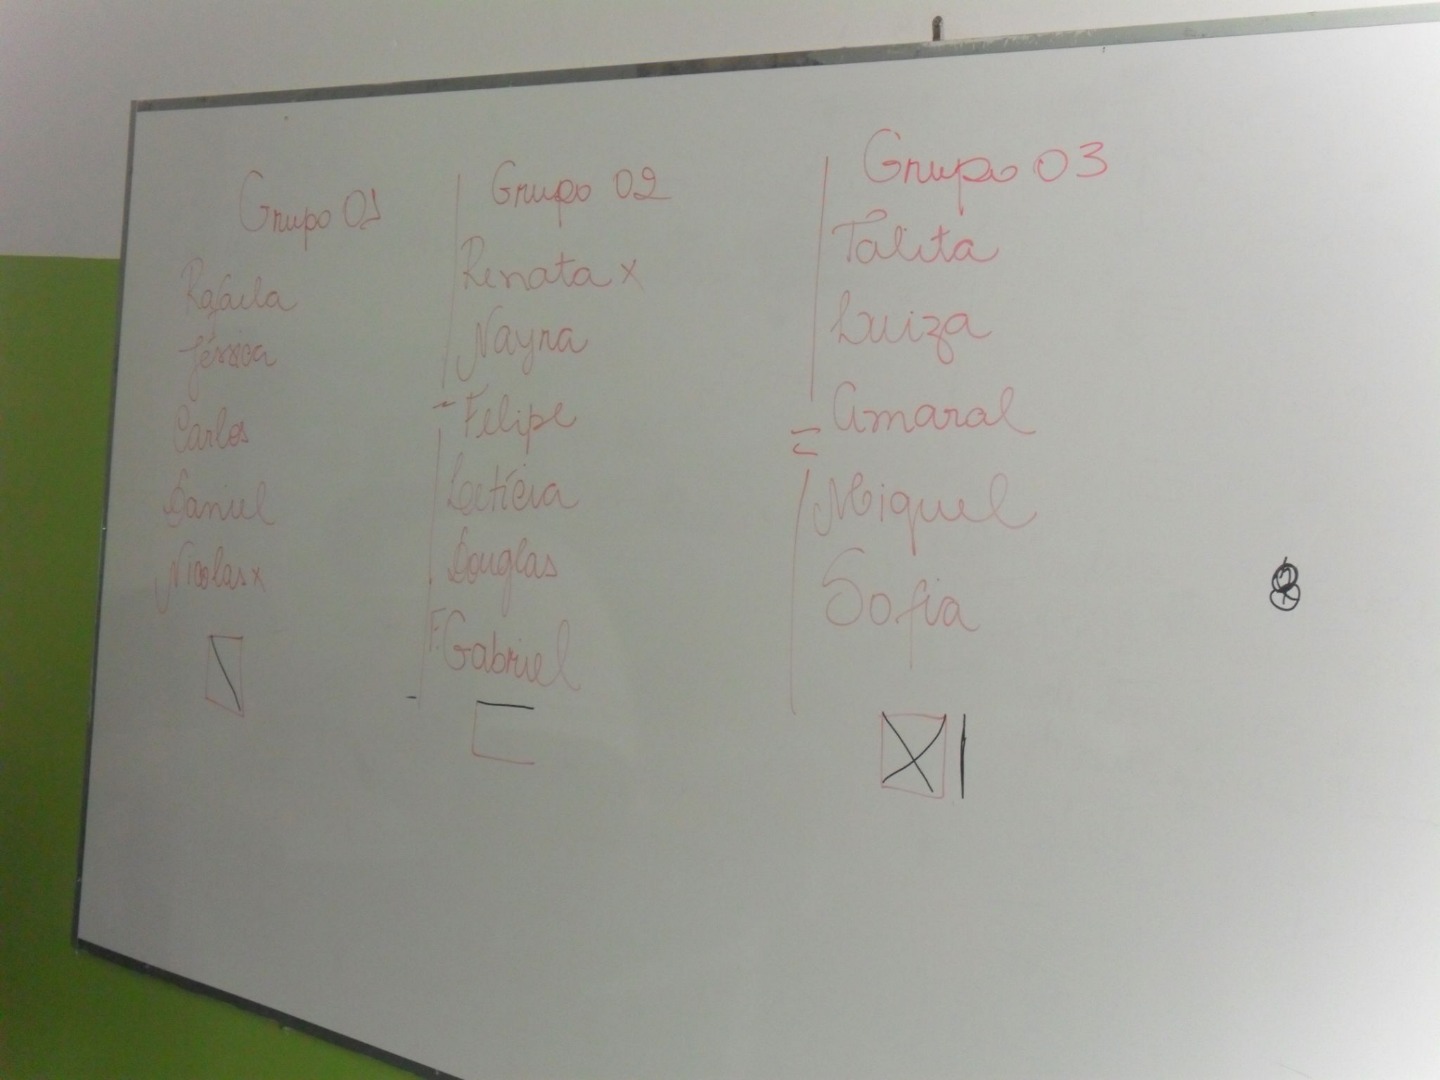 Grupo 01
Rafaela
Jéssica
Carlos
Daniel
Nicolas x
Grupo 02
Renata x
Nayra
Felipe
Letícia
Douglas
F. Gabriel
Grupo 03
Talita
Luiza
Amaral
Miguel
Sofia